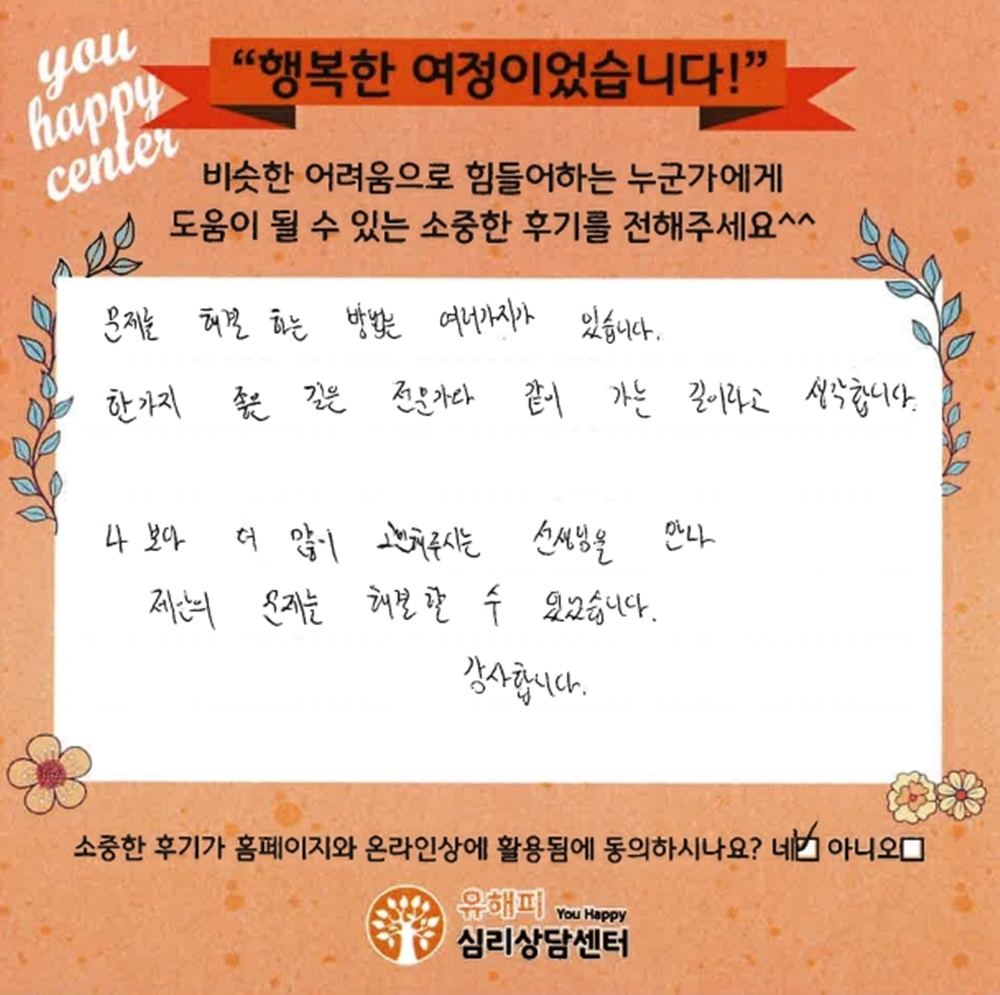 you
happy
center
“행복한 여정이었습니다!”
비슷한 어려움으로 힘들어하는 누군가에게
도움이 될 수 있는 소중한 후기를 전해주세요^^
문제는 해결 하는 방법는 여러가지가 있습니다.
한가지 좋은 길은 전문가와 같이 가는 길이라고 생각합니다.
나 보다 더 많이 고민해주시는 선생님을 만나
문제를 해결할 수 있었습니다.
감사합니다.
소중한 후기가 홈페이지와 온라인상에 활용됨에 동의하시나요? 네☑ 아니오☐
유해피 You Happy
심리상담센터